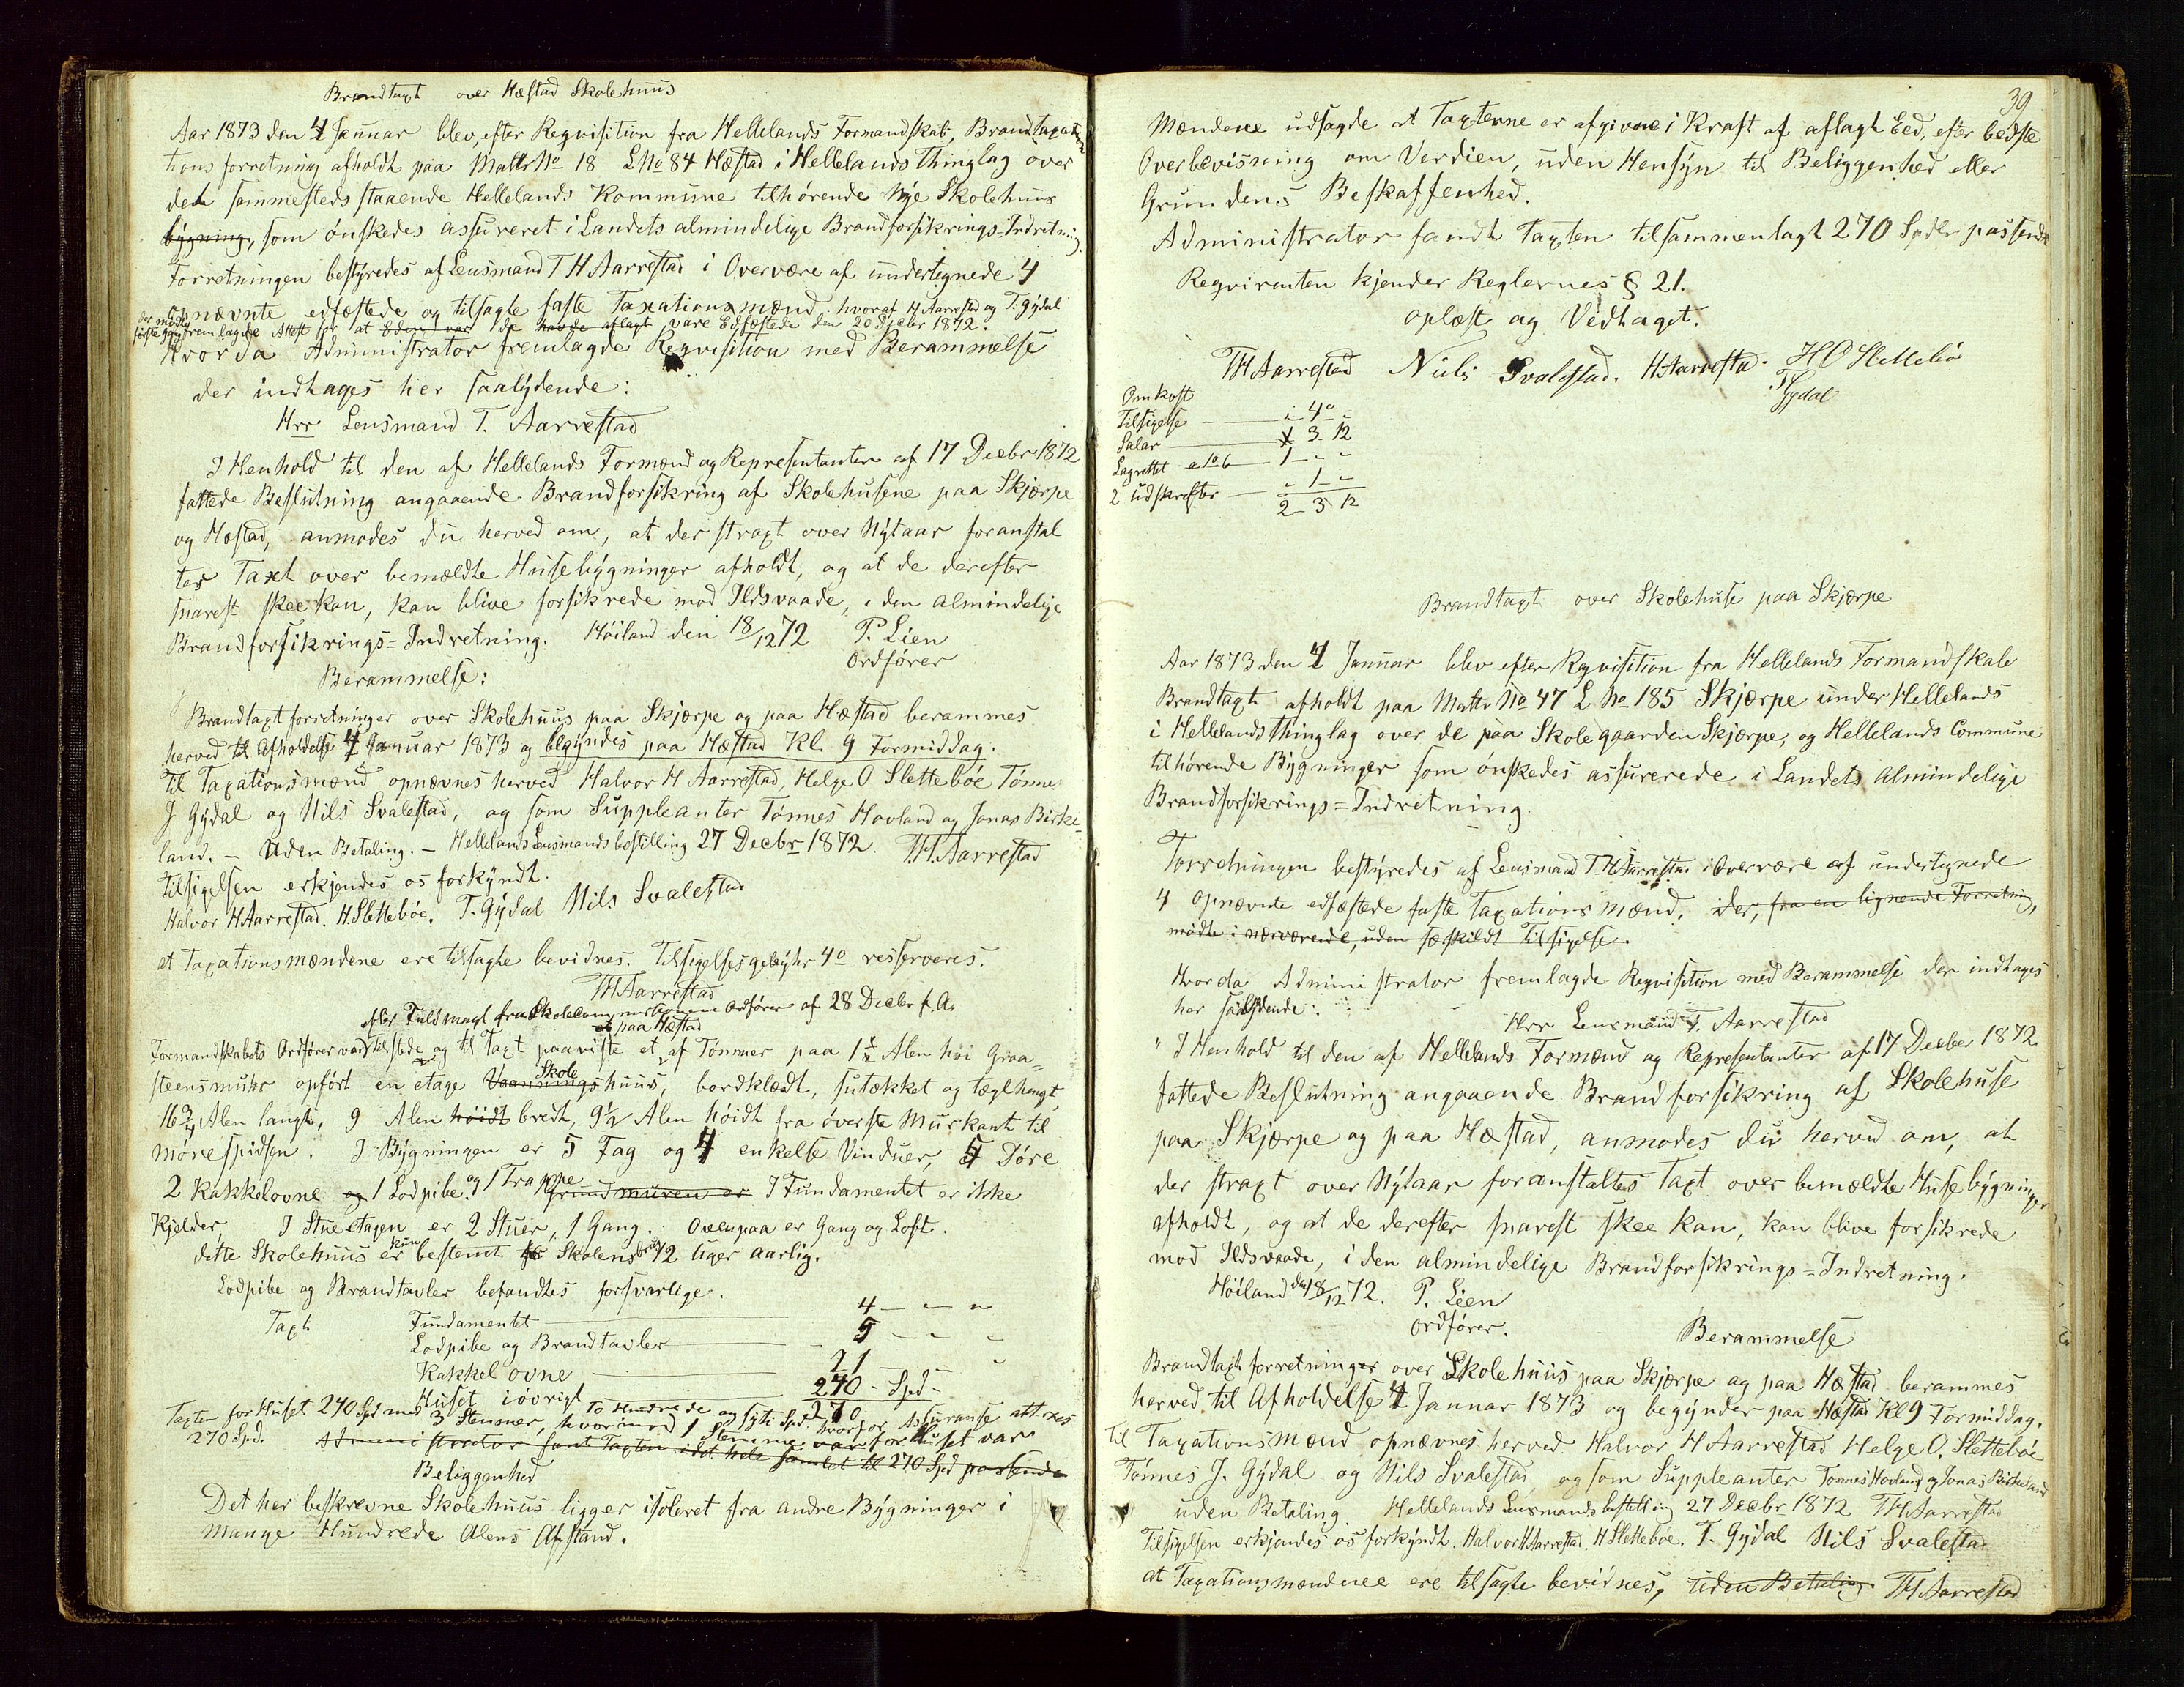 Brandtaxt over Hæstad Skolehuus
Aar 1873 den 4 Januar blev, efter Reqvisition fra Hellelands Formandskab, Brandtaxa
tionsforretning afholdt paa Matr No 18 L No 84 Hæstad i Hellelands Thinglag over
den sammesteds staaende Hellelands Kommune tilhørende Nye Skolehuus
bygning, som ønskedes assureret i Landets almindelige Brandforsikrings-Indretning.
Forretningen bestyredes af Lensmand T H Aarrestad i Overvære af undertegnede 4
opnævnte edfæstede og tilsagte faste Taxationsmænd, hvoraf H Aarrestad og T. Gydal
fremlagde Attest for at de havde aflagt vare Edfæstede den 20 Decbr 1872.
Hvorda Administrator fremlagde Reqvisition med Berammelse
der indtages her saalydende:
Hrr Lensmand T. Aarrestad
I Henhold til den af Hellelands Formænd og Repræsentanter af 17 Decbr 1872
fattede Beslutning angaaende Brandforsikring af Skolehusene paa Skjærpe
og Hæstad, anmodes du herved om, at der straxt over Nytaar foranstal
tes Taxt over bemældte Husebygninger afholdt, og at de derefter
snarest skee kan, kan blive forsikrede mod Ildsvaade, i den almindelige
Brandforsikrings=Indretning. Høiland den 18/12 72 P. Lien
Ordfører
Berammelse:
Brandtaxtforretninger over Skolehuus paa Skjærpe og paa Hæstad berammes
herved til Afholdelse 4 Januar 1873 og begyndes paa Hæstad Kl. 9 Formiddag.
Til Taxationsmænd opnævnes herved Halvor H Aarrestad, Helge O Slettebøe Tønnes
J Gydal og Nils Svalestad, og som Suppleanter Tønnes Hovland og Jonas Birke
land. – Uden Betaling. – Hellelands Lensmandsbestilling 27 Decbr 1872. TH Aarrestad
Tilsigelsen erkjendes os forkyndt.
Halvor H Aarrestad. H. Slettebøe. T. Gydal Nils Svalestad
at Taxationsmændene ere tilsagte bevidnes. Tilsigelsesgebyhr 4o resserveres.
TH Aarrestad
efter Fuldmagt fra Skolecommissionens Ordfører af 28 Decbr f. A.
paa Hæstad
Formandskabets Ordfører var tilstede og til Taxt paaviste et af Tømmer paa 1½ Alen høi Graa
steensmuhr opført en etage Vaanings Skole huus, bordklædt, sutækket og tæglhengt,
16¾ Alen langt, 9 Alen høidt bredt, 9½ Alen høidt fra øverste Murkant til
mønespidsen. I Bygningen er 5 Fag og 4 enkelte Vinduer, 5 Døre
2 Kakkelovne og 1 Lodpibe. og 1 Trappe grundmuren er I Fundamentet er ikke
Kjelder, I Stuetagen er 2 Stuer, 1 Gang. Ovenpaa er Gang og Loft.
dette Skolehuus er kun bestemt til Skolens brug 12 Uger aarlig.
Lodpibe og Brandtavler befandtes forsvarlige.
Taxt Fundamentet 4 – " "
Lodpibe og Brandtavler 5 – " "
Kakkelovne 21 – "
Huset iøvrigt 240 – Spd –
To Hundrede og Syti Spd. 270
Taxten for Huset 240 Spd med 3 Stemmer, hvorimod 1 Stemme var for Huset var
270 Spd. hvorfor Assuranse atteres
Administrator fant Taxten i det hele samlet til 270 Spd passende
Beliggenhed
Det her beskrevne Skolehuus ligger isoleret fra andre Bygninger i
mange Hundrede Alens Afstand.
39
Mændene udsagde at Taxterne er afgivne i Kraft af aflagt Eed, efter bedste
Overbevisning om Verdien, uden Hensyn til Beliggenhed eller
Grundens Beskaffenhed.
Administrator fandt Taxten tilsammenlagt 270 Spdlr passende
Reqvirenten kjender Reglernes § 21.
Oplæst og Vedtaget.
TH Aarrestad Niels Svalestad. H Aarrestad. HO Slettebø
T Gydal
Omkost
Tilsigelse – " 4o "
Salær – 1 3 – 12
Lagrettet – 1 – " "
2 Udskrifter – " 1 – "
2 3 12
Brandtaxt over Skolehuse paa Skjærpe
Aar 1873 den 4 Januar blev efter Reqvisition fra Hellelands Formandskab
Brandtaxt afholdt paa Matr No 47 L No 185 Skjærpe under Hellelands
i Hellelands Thinglag over de paa Skolegaarden Skjærpe, og Hellelands Commune
tilhørende Bygninger som ønskedes assurerede i Landets Almindelige
Brandforsikrings=Indretning.
Forretningen bestyredes af Lensmand T H Aarrestad i Overvære af undertegnede
4 opnævnte edfæstede faste Taxationsmænd, der, fra en lignende Forretning,
mødte i nærværende, uden særskildt Tilsigelse.
Hvorda Administrator fremlagde Reqvisition med Berammelse der indtages
her saalydende:
Hrr Lensmand T. Aarrestad
" I Henhold til den af Hellelands Formænd og Repræsentanter af 17 Decber 1872
fattede Beslutning angaaende Brandforsikring af Skolehuse
paa Skjærpe og paa Hæstad, anmodes du herved om, at
der straxt over Nytaar foranstaltes Taxt over bemældte Husebygninger
afholdt, og at de derefter snarest skee kan, kan blive forsikrede
mod Ildsvaade, i den almindelige Brandforsikrings=Indretning.
Høiland den 18/12 72. P. Lien
Ordfører.
Berammelse
Brandtaxtforretninger over Skolehuus paa Skjærpe og paa Hæstad berammes
herved til Afholdelse 4 Januar 1873 og begynder paa Hæstad Kl 9 Formiddag.
Til Taxationsmænd opnævnes herved. Halvor H Aarrestad Helge O. Slettebøe
Tønnes J. Gydal og Nils Svalestad og som Suppleanter Tønnes Hovland og Jonas Birkeland
uden Betaling. Hellelands Lensmandsbestilling 27 Decbr 1872 TH Aarrestad
Tilsigelsen erkjendes os forkyndt. Halvor H Aarrestad. H Slettebøe. T. Gydal Nils Svalestad
at Taxationsmændene ere tilsagte bevidnes, uden Betaling TH Aarrestad